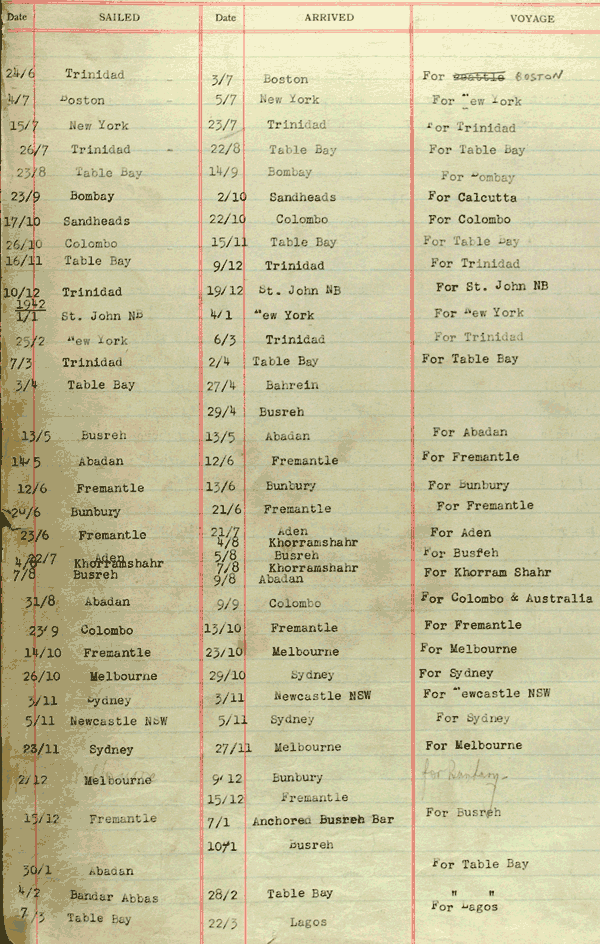 Date SAILED Date ARRIVED VOYAGE
24/6 Trinidad - 3/7 Boston For Seattle BOSTON
4/7 Boston 5/7 New York For New York
15/7 New York 23/7 Trinidad For Trinidad
26/7 Trinidad - 22/8 Table Bay For Table Bay
23/8 Table Bay 14/9 Bombay For Bombay
23/9 Bombay 2/10 Sandheads For Calcutta
17/10 Sandheads 22/10 Colombo For Colombo
26/10 Colombo 15/11 Table Bay For Table Bay
16/11 Table Bay 9/12 Trinidad For Trinidad
10/12 Trinidad 19/12 St. John NB For St. John NB
1942
1/1 St. John NB 4/1 New York For New York
25/2 New York 6/3 Trinidad For Trinidad
7/3 Trinidad 2/4 Table Bay For Table Bay
3/4 Table Bay 27/4 Bahrein
29/4 Busreh
13/5 Busreh 13/5 Abadan For Abadan
14/5 Abadan 12/6 Fremantle For Fremantle
12/6 Fremantle 13/6 Bunbury For Bunbury
20/6 Bunbury 21/6 Fremantle For Fremantle
23/6 Fremantle 21/7 Aden For Aden
4/8 Khorramshahr
22/7 Aden 5/8 Busreh For Busreh
4/8 Khorramshahr 7/8 Khorramshahr
7/8 Busreh 9/8 Abadan For Khorram Shahr
31/8 Abadan 9/9 Colombo For Colombo & Australia
23/9 Colombo 13/10 Fremantle For Fremantle
14/10 Fremantle 23/10 Melbourne For Melbourne
26/10 Melbourne 29/10 Sydney For Sydney
3/11 Sydney 3/11 Newcastle NSW For Newcastle NSW
5/11 Newcastle NSW 5/11 Sydney For Sydney
23/11 Sydney 27/11 Melbourne For Melbourne
2/12 Melbourne 9/12 Bunbury for Bunbury
15/12 Fremantle
15/12 Fremantle 7/1 Anchored Busreh Bar For Busreh
10/1 Busreh
30/1 Abadan For Table Bay
4/2 Bandar Abbas 28/2 Table Bay " "
7/3 Table Bay 22/3 Lagos For Lagos